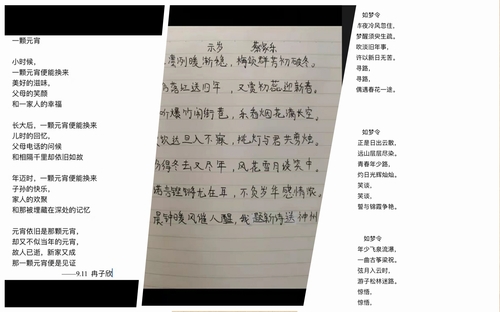 一颗元宵
小时候，
一颗元宵便能换来
美好的滋味，
父母的笑颜
和一家人的幸福
长大后，一颗元宵便能换来
儿时的回忆，
父母电话的问候
和相隔千里却依旧如故
年迈时，一颗元宵便能换来
子孙的快乐，
家人的欢聚
和那被埋藏在深处的记忆
元宵依旧是那颗元宵，
却又不似当年的元宵，
故人已逝，新家又成
那一颗元宵便是见证
——9.11 冉子欣
渐褪，梅颂群芳初破冬。
落红送旧年，又需初蕊迎新春。
听爆竹闹街巷，乐看烟花满长空。
挑灯与君共剪烛。
得冬去又尽年，风花雪月谈笑中。
犹在耳，不负岁年感情浓。
晨钟暖风催人醒，我题新诗送神州
如梦令
本夜冷风忽住，
梦醒须臾生疏。
吹淡旧年事，
许以新日无苦。
寻路，
寻路，
偶遇春花一途。
如梦令
正是日出云散，
远山层层尽染。
青春年少路，
灼日光辉灿灿。
笑谈，
笑谈，
誓与锦霞争艳。
如梦令
年少飞泉流瀑，
一曲古筝梁祝。
弦月入云时，
游子松林迷路。
惊悟，
惊悟，